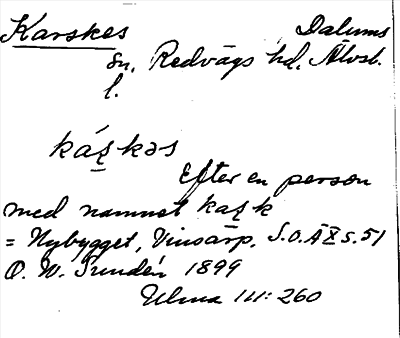 Karskes Dalums
sn, Redvägs hd. Älvsb.
l.
káʂkəs
Efter en person
med namnet kaʂk
= Nybygget, Vinsarp, S.O.Ä X s. 51
O. W. Sundén 1899
Ulma 141: 260